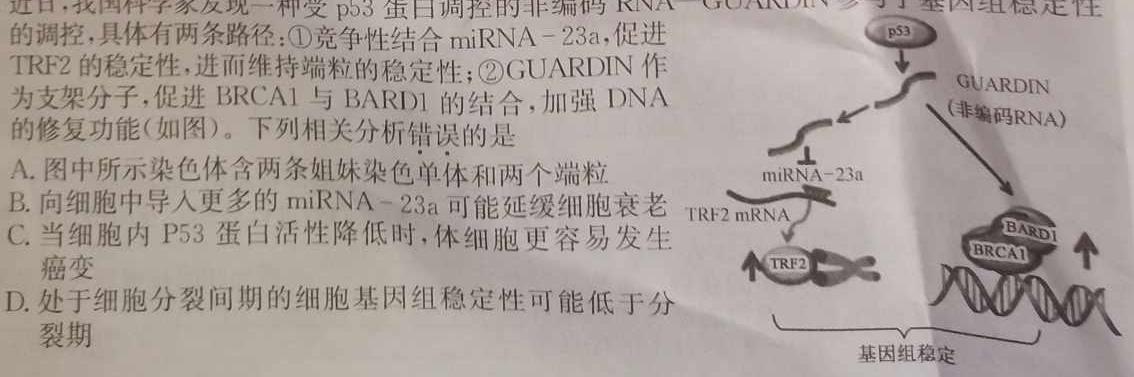 近日,我国科学家发现一种受 p53 蛋白调控的非编码 RNA—GUARDIN 参与了基因组稳定性
的调控,具体有两条路径:①竞争性结合 miRNA-23a,促进
TRF2 的稳定性,进而维持端粒的稳定性;②GUARDIN 作
为支架分子,促进 BRCA1 与 BARD1 的结合,加强 DNA
的修复功能(如图)。下列相关分析错误的是
A. 图中所示染色体含两条姐妹染色单体和两个端粒
B. 向细胞中导入更多的 miRNA-23a 可能延缓细胞衰老
C. 当细胞内 P53 蛋白活性降低时,体细胞更容易发生
癌变
D. 处于细胞分裂间期的细胞基因组稳定性可能低于分
裂期
p53
GUARDIN
(非编码RNA)
miRNA-23a
TRF2 mRNA
TRF2
BARD1
BRCA1
基因组稳定